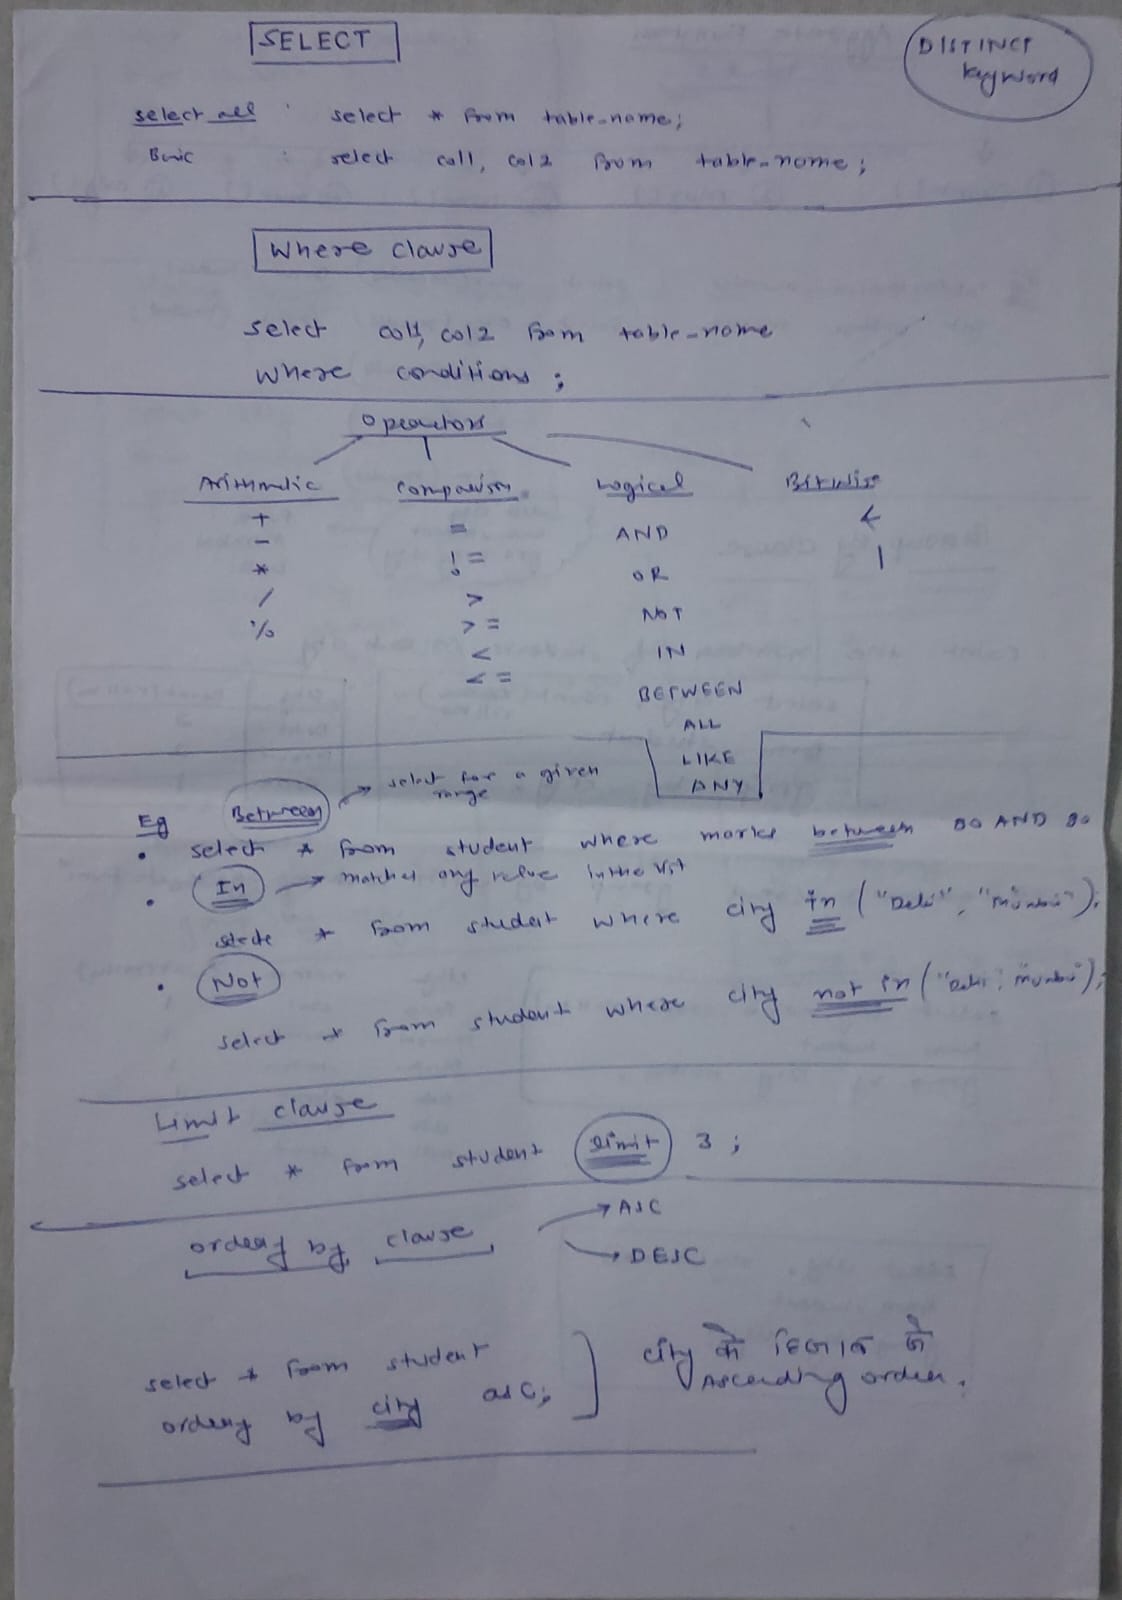 SELECT
DISTINCT
keyword
select all : select * from table-name;
Basic : select col1, col2 from table-name;
Where clause
select col1, col2 from table-name
where conditions ;
Operators
Arithmetic Comparison Logical Bitwise
+ = AND &
- != OR |
* > NOT
/ >= IN
% < BETWEEN
<= ALL
LIKE
ANY
Eg Between → select for a given
range
• select * from student where marks between 80 AND 90
• In → matches any value in the list
select * from student where city in ("Delhi", "Mumbai");
• Not
select * from student where city not in ("Delhi", "Mumbai");
Limit clause
select * from student limit 3 ;
order by clause → ASC
→ DESC
select * from student
order by city asc;
city के हिसाब से
Ascending order.